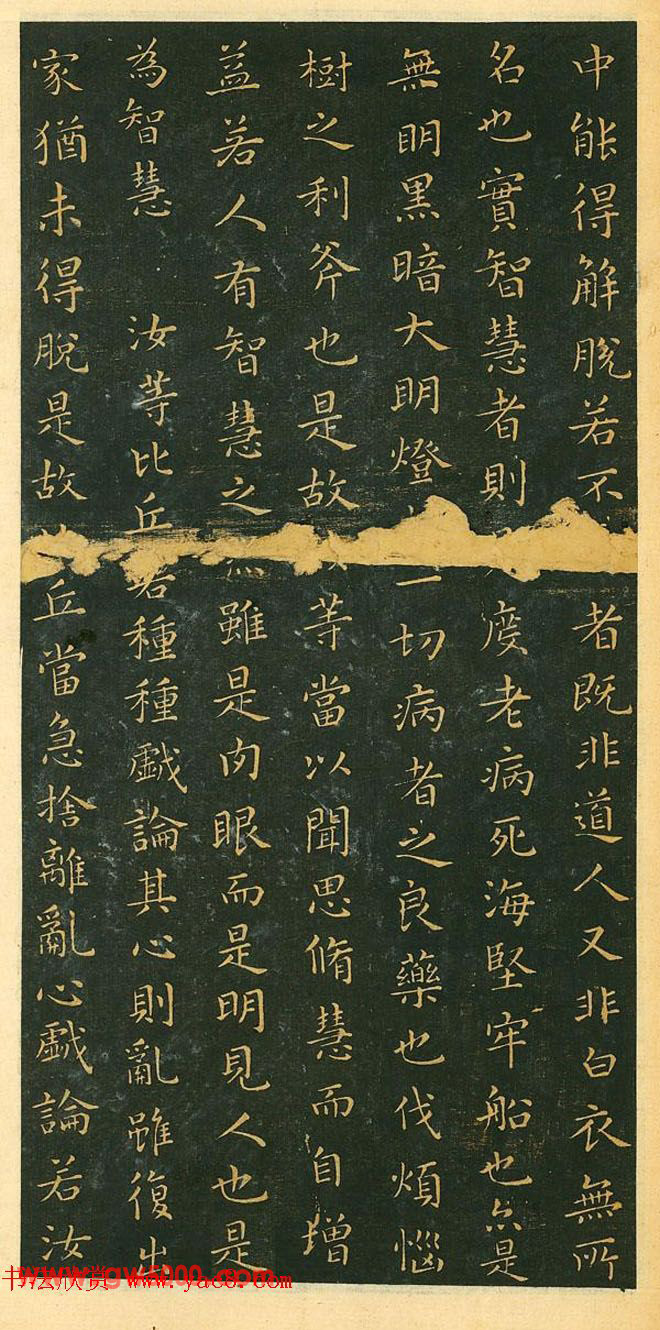 中能得解脫若不者既非道人又非白衣無所
名也實智慧者則度老病死海堅牢船也亦是
無明黑暗大明燈一切病者之良藥也伐煩惱
樹之利斧也是故等當以聞思脩慧而自增
益若人有智慧之雖是肉眼而是明見人也是
為智慧 汝等比丘若種種戲論其心則亂雖復出
家猶未得脫是故丘當急捨離亂心戲論若汝
书法欣赏 www.yac8.com